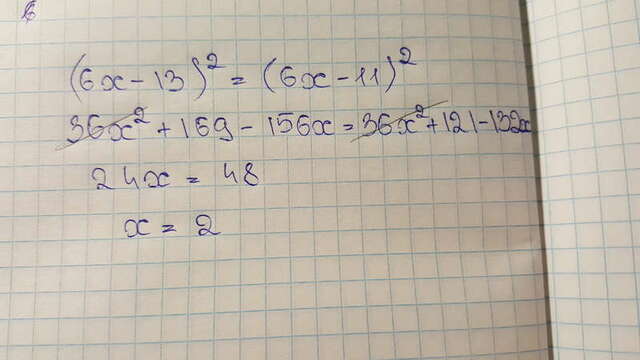 (6x - 13)² = (6x - 11)²
36x² + 169 - 156x = 36x² + 121 - 132x
24x = 48
x = 2